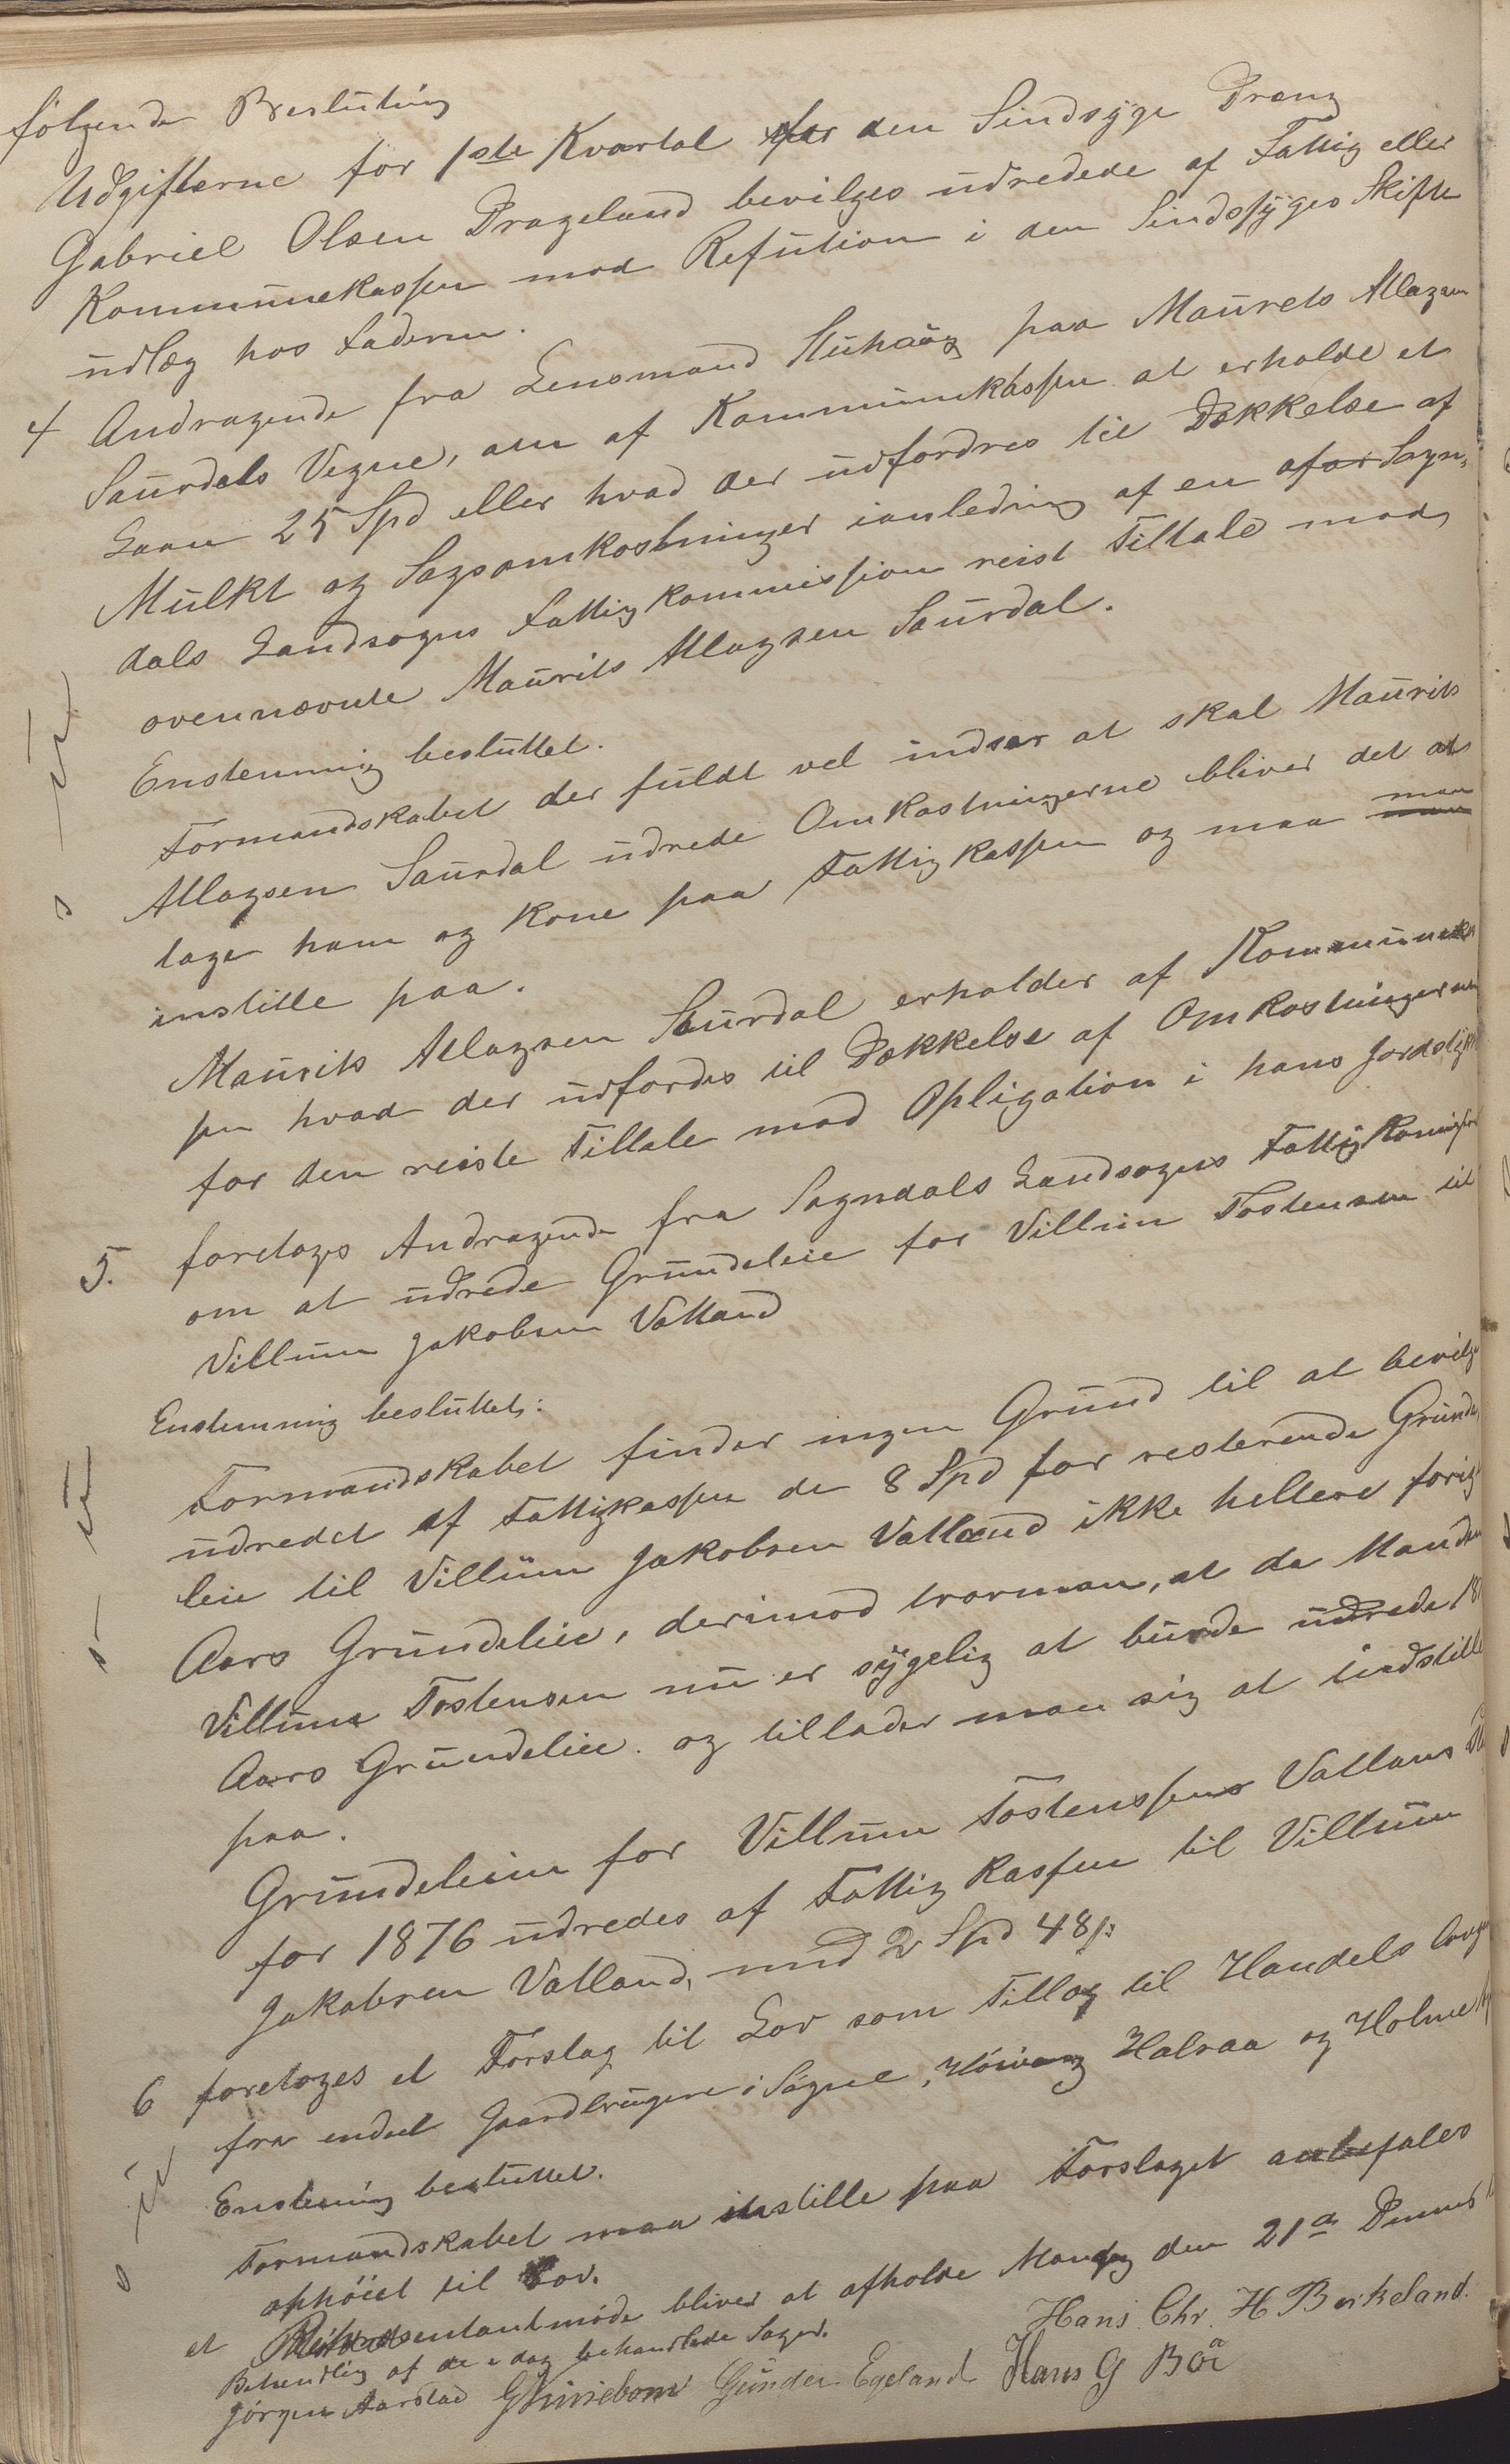 følgende Beslutning
Udgifterne for 1ste Kvartal for den Sindsyge Dreng
Gabriel Olsen Drageland bevilges udredede af Fattig eller
Kommunekassen mod Refution i den Sindssyges Skifte
udlæg hos Faderen.
4 Andragende fra Lensmand Stuhaug paa Maurets Atlagsen
Saurdals Vegne, om af Kommunekassen at erholde et
Laan 25 Spd eller hvad der udfordres til Dækkelse af
Mulkt og Sagsomkostninger ianledning af en afar Sogn,
dals Landsogns Fattigkommission reist Tiltale mod,
ovennævnte Maurits Atlagsen Saurdal.
Enstemmig besluttet.
Formandskabet der fuldt vel indser at skal Maurits
Atlagsen Saurdal udrede Omkostningerne bliver det at
tage ham og Kone paa Fattigkassen og maa man man
instille paa.
Maurits Atlagsen Saurdal erholder af Kommuneka
sen hvad der udfordes til Dækkelse af Omkostningerne
for den reiste Tiltale mod Opligation i hans Jordstyk
5. foretoges Andragende fra Sogndals Landsogns Fattigkomission
om at udrede Grundeleie for Villum Tostensen til
Villum Jakobsen Vatland
Enstemmig besluttet:
Formandskabet finder ingen Grund til at bevilge
udredet af Fattigkassen de 8 Spd for resterende Grunde,
leie til Villum Jakobsen Vatland ikke hellere forig
Aars Grundeleie, derimod trorman, at da Manden
Villum Tostensen nu er sygelig at burde udrede 18
Aars Grundeleie. og tillader man sig at indstille
paa.
Grundeleien for Villum Tostenssens Vatlans
for 1876 udredes af Fattigkassen til Villum
Jakobsen Vatland, med 2 Spd 48 s:
6 foretoges et Forslag til Lov som Tillæg til Handels
fra endeel Gaardbrugere i Søgne, Halsaa og Holme
Enstemig besluttet.
Formandskabet maa instille paa Forslaget anbefales
ophöiet til Lov.
et Repræsentantmøde bliver at afholde Mandag den 21de Dennes
Behandling af de i dag behandlede Sager.
Hans Chr. H Berkeland.
Jørgen Aarstad Gunder Egeland Hans G Bøe